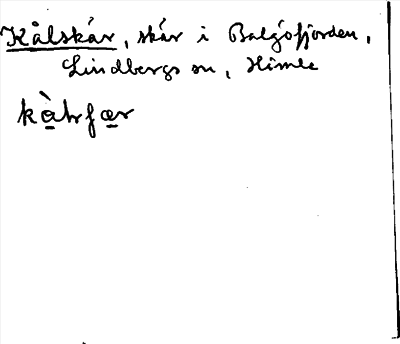 Kålskär, skär i Balgöfjorden,
Lindbergs sn, Himle